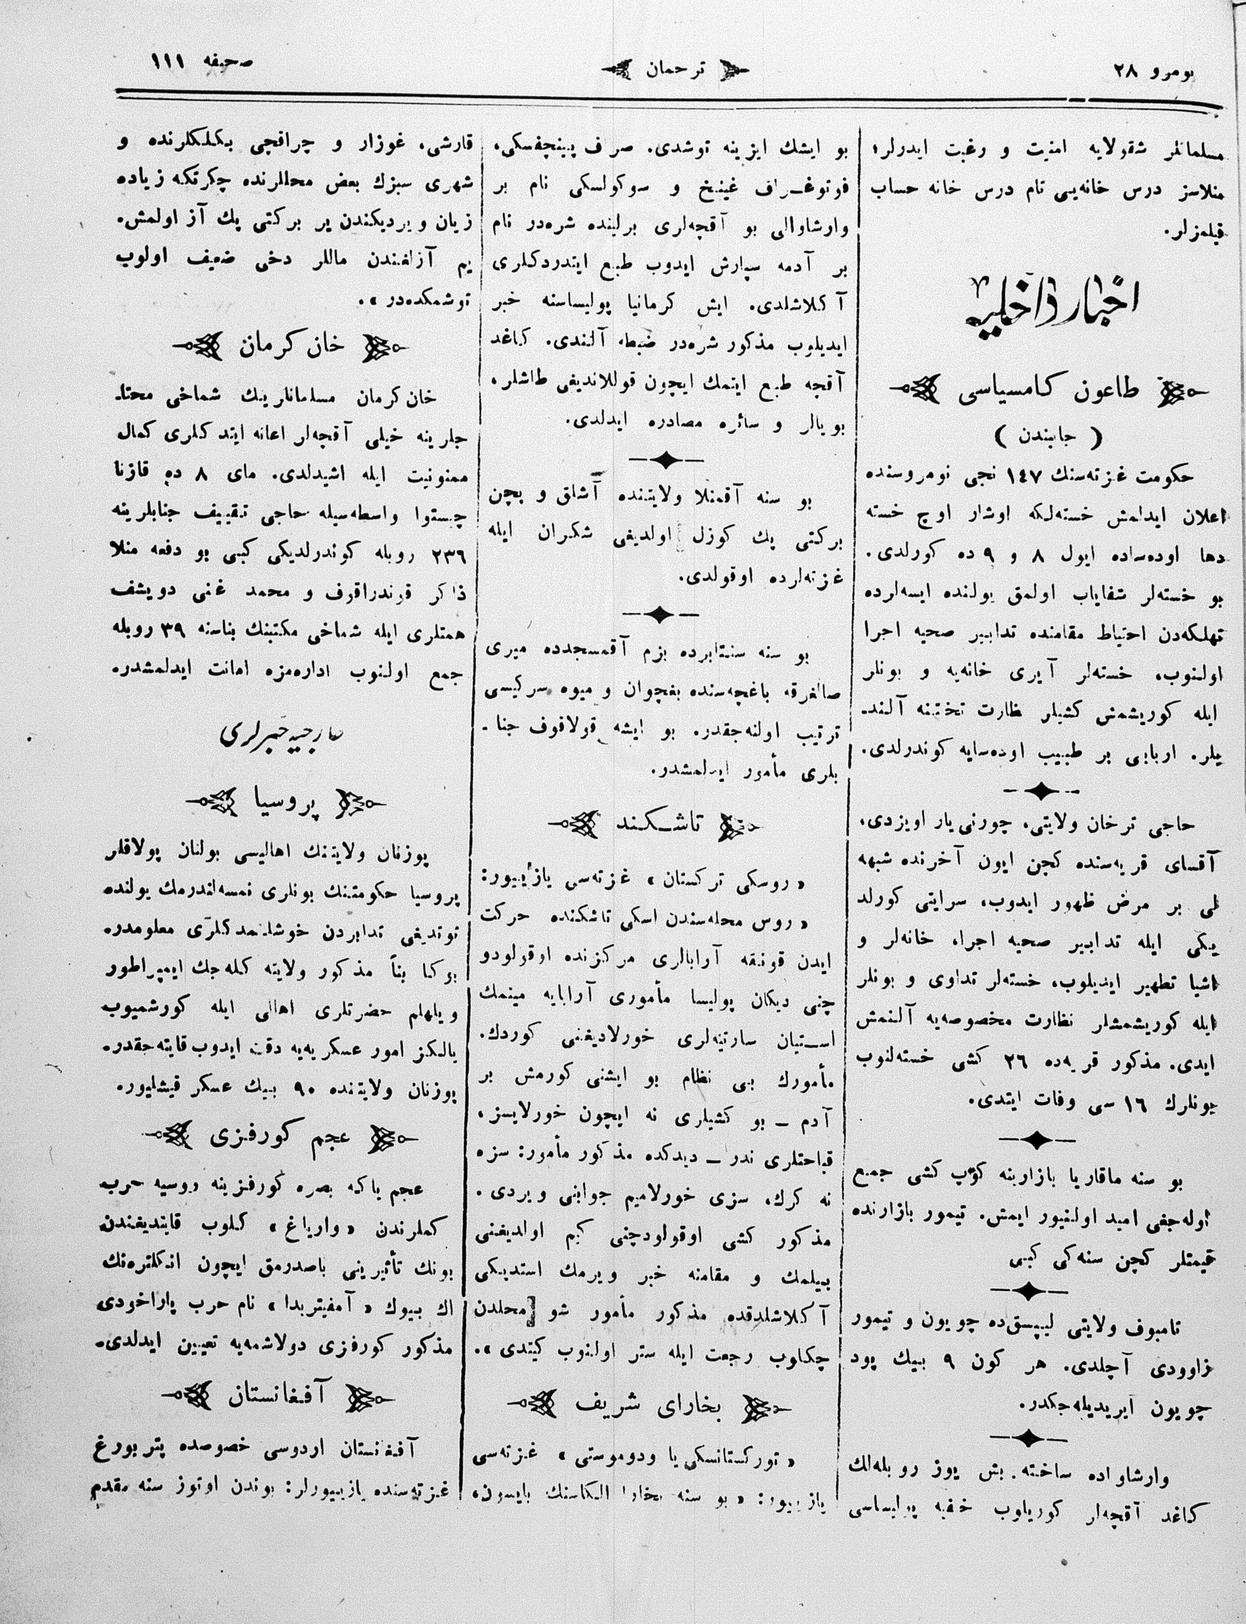 نومرو ٢٨
ترجمان
صحیفه ١١١
مسلمانلر شقولایه امنیت و رغبت ایدرلر؛
منلاسز درس خانه‌یی تام درس خانه حساب
قیلمزلر.
اخبار داخلیه
طاعون کامسیاسی
( جابیندن )
حکومت غزته‌سنك ١٤٧ نجی نومروسنده
اعلان ایدلمش خسته‌لکه اوشار اوچ خسته
دها اوده‌ساده ایول ٨ و ٩ ده کورلدی.
بو خسته‌لر شفایاب اولمق یولنده ایسه‌لرده
تهلکه‌دن احتیاط مقامنده تدابیر صحیه اجرا
اولنوب، خسته‌لر آیری خانه‌یه و بونلر
ایله کوریشمش کشیلر نظارت تختینه آلند-
یلر. اربابی بر طبیب اوده‌سایه کوندرلدی.
حاجی ترخان ولایتی، چورنی یار اویزدی،
آقسای قریه‌سنده کچن ایون آخرنده شبهه
لی بر مرض ظهور ایدوب، سرایتی کورلد
یکی ایله تدابیر صحیه اجرا، خانه‌لر و
اشیا تطهیر ایدیلوب، خسته‌لر تداوی و بونلر
ایله کوریشمشلر نظارت مخصوصه‌یه آلنمش
ایدی. مذکور قریه‌ده ٢٦ کشی خسته‌لنوب
بونلرك ١٦ سی وفات ایتدی.
بو سنه ماقاریا بازارینه کوپ کشی جمیع
اوله‌جغی امید اولنیور ایمش. تیمور بازارنده
قیمتلر کچن سنه‌کی کبی
تامبوف ولایتی لیپسق‌ده چویون و تیمور
زاوودی آچلدی. هر کون ٩ بیك پود
چویون ایریدیله‌جکدر.
وارشاواده ساخته بش یوز روبله‌لك
کاغد آقچه‌لر کوریلوب خفیه پولیساسی
بو ایشك ایزینه توشدی. صراف پینچفسکی،
فوتوغراف غینیخ و سوکولسکی نام بر
وارشاوالی بو آقچه‌لری برلینده شره‌در نام
بر آدمه سپارش ایدوب طبع ایتدردکلری
آکلاشلدی. ایش کرمانیا پولیساسنه خبر
ایدیلوب مذکور شره‌در ضبطه آلندی. کاغد
آقچه طبع ایتمك ایچون قوللاندیغی طاشلر،
بویالر و سائره مصادره ایدلدی.
بو سنه آقمنلا ولایتنده آشلق و پچن
برکتی پك کوزل اولدیغی شکران ایله
غزته‌لرده اوقولدی.
بو سنه سنتابرده بزم آقمسجدده میری
صالغرقه باغچه‌سنده بغچوان و میوه سرکیسی
ترتیب اولنه‌جقدر. بو ایشه قولاقوف جنا-
بلری مأمور ایدلمشدر.
تاشکند
« روسکی ترکستان » غزته‌سی یازییور:
« روس محله‌سندن اسکی تاشکنده حرکت
ایدن قونقه آرابالری مرکزنده اوقولودو
چنی دیکان پولیسا مأموری آرابایه مینمك
استیان سارتیه‌لری خورلادیغنی کوردك.
مأمورك بی نظام بو ایشنی کورمش بر
آدم — بو کشیلری نه ایچون خورلایسز،
قباحتلری ندر — دیدکده مذکور مأمور: سزه
نه کرك، سزی خورلامیم جوابنی ویردی.
مذکور کشی اوقولودچنی کیم اولدیغنی
بیلمك و مقامنه خبر ویرمك استدیکی
آکلاشلدقده مذکور مأمور شو محلدن
چکلوب رجعت ایله ستر اولنوب کیتدی ».
بخارای شریف
« تورکستانسکی یا ودوموستی » غزته‌سی
یازییور: « بو سنه بخارا الکاسنك بایسون،
قارشی، غوزار و چراقچی بکلکلرنده و
شهری سبزك بعض محللرنده چکرتکه زیاده
زیان ویردیکندن یر برکتی پك آز اولمش.
یم آزلغندن ماللر دخی ضعیف اولوب
توشمکده‌در ».
خان کرمان
خان کرمان مسلمانلرینك شماخی محتا-
جلرینه خیلی آقچه‌لر اعانه ایتدکلری کمال
ممنونیت ایله اشیدلدی. مای ٨ ده قازنا
چیستوا واسطه‌سیله حاجی تقییف جنابلرینه
٢٣٦ روبله کوندرلدیکی کبی بو دفعه منلا
ذاکر قوندراقوف و محمد غنی دویشف
همتلری ایله شماخی مکتبنك بناسنه ٣٩ روبله
جمع اولنوب اداره‌مزه امانت ایدلمشدر.
خارجیه خبرلری
پروسیا
پوزنان ولایتنك اهالیسی بولنان پولاقلر
پروسیا حکومتنك بونلری نمسه‌لندرمك یولنده
توتدیغی تدابردن خوشلنمدکلری معلومدر.
بوکا بناً مذکور ولایته کله‌جك ایمپراطور
ویلهلم حضرتلری اهالی ایله کورشمیوب
یالکز امور عسکریه‌یه دقت ایدوب قایته‌جقدر.
پوزنان ولایتنده ٩٠ بیك عسکر قیشلیور.
عجم کورفزی
عجم یاکه بصره کورفزینه روسیه حرب
کملرندن « واریاغ » کلوب قایتدیغندن
بونك تأثیرینی باصدرمق ایچون انکلتره‌نك
اك بیوك « آمفیتریدا » نام حرب پاراخودی
مذکور کورفزی دولاشمه‌یه تعیین ایدلدی.
آفغانستان
آفغانستان اردوسی خصوصده پتربورغ
غزته‌سنده یازییورلر: بوندن اوتوز سنه مقدم